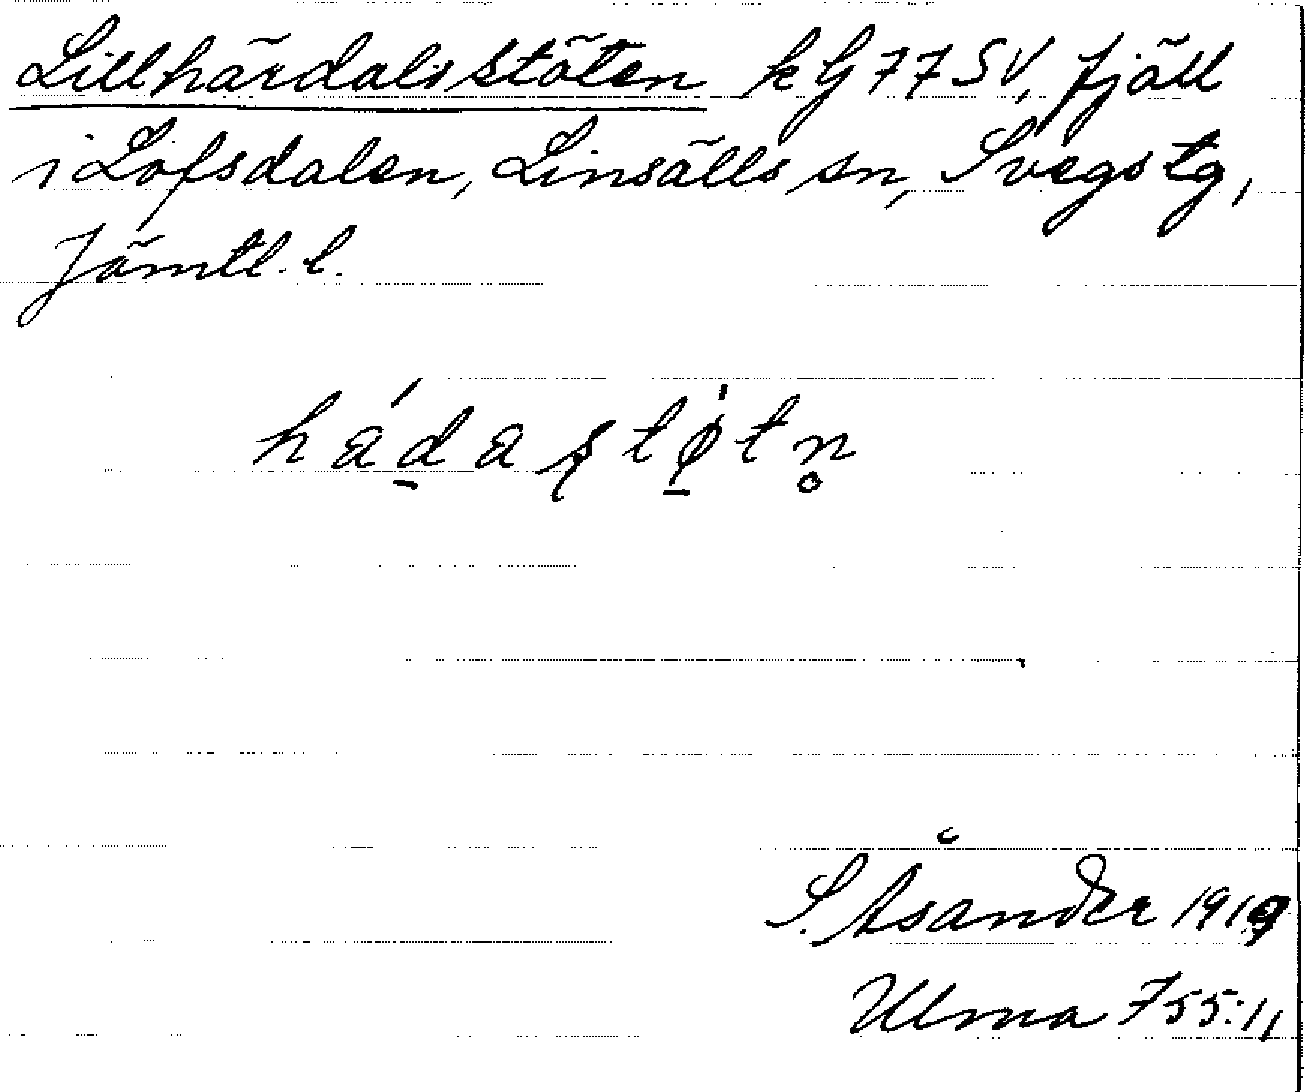 Lillhärdalsstöten kG 77 SV, fjäll
i Lofsdalen, Linsälls sn, Svegs tg,
Jämtl. l.
S. Åsander 1919
Ulma 755:11